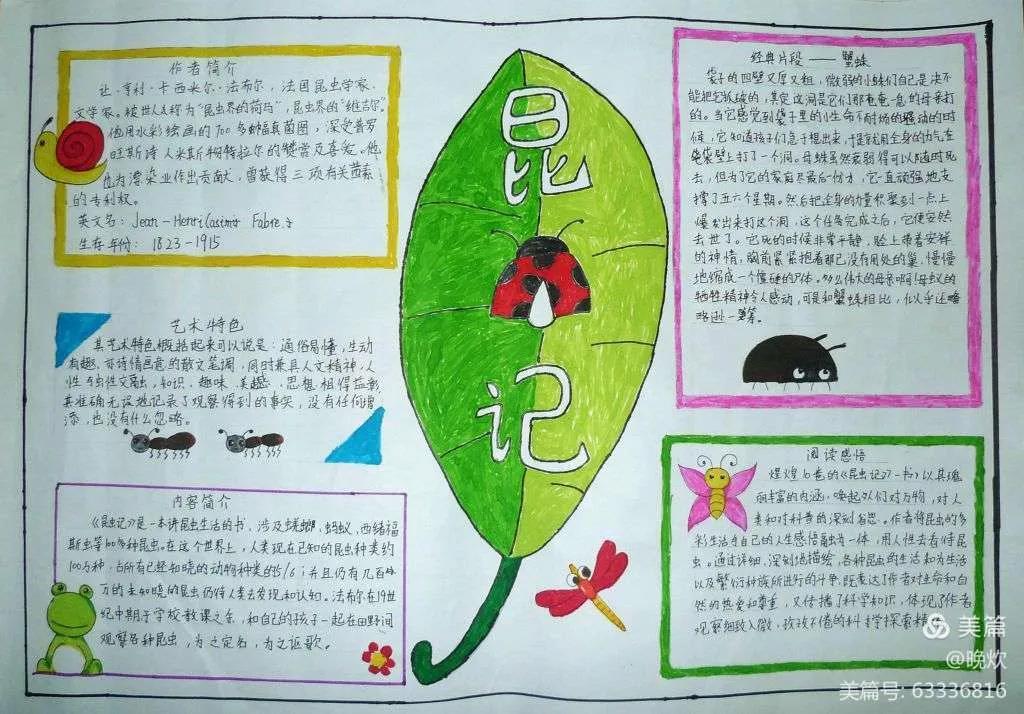 作者简介
让·亨利·卡西米尔·法布尔，法国昆虫学家、
文学家。被世人称为"昆虫界的荷马"，昆虫界的"维吉尔"。
他用水彩绘画的700多幅真菌图，深受普罗
旺斯诗人米斯特拉尔的赞赏及喜爱。他
也为漂染业作出贡献，曾获得三项有关茜素
的专利权。
英文名：Jean-Henri Casimir Fabre
生存年份：1823-1915
艺术特色
其艺术特色概括起来可以说是：通俗易懂，生动
有趣，亦诗情画意的散文笔调，同时兼具人文精神，人
性与虫性交融，知识、趣味、美感、思想相得益彰
其准确无误地记录了观察得到的事实，没有任何增
添，也没有什么忽略。
内容简介
《昆虫记》是一本讲昆虫生活的书，涉及蜣螂、蚂蚁、西绪福
斯虫等100多种昆虫。在这个世界上，人类现在已知的昆虫种类约
100万种，占所有已经知晓的动物种类的5/6；并且仍有几百
万的未知晓的昆虫仍待人类去发现和认知。法布尔在19世
纪中期于学校教课之余，和自己的孩子一起在田野间
观察各种昆虫，为之定名，为之讴歌。
昆
虫
记
经典片段——蟹蛛
袋子的四壁又厚又粗，微弱的小蛛们自己是决不
能把它抓破的，其实这洞是它们那奄奄一息的母亲打
的。当它感觉到袋子里的小生命不耐烦的骚动的时
候，它知道孩子们急于想出来，于是就用全身的力气在
袋壁上打了一个洞。母蛛虽然衰弱得可以随时死
去，但为了它的家庭尽最后一份力，它一直顽强地支
撑了五六个星期。然后把全身的力量积聚到一点上
爆发出来打这个洞，这个任务完成之后，它便安然
去世了。它死的时候非常平静，脸上带着安祥
的神情，胸前紧紧抱着那已没有用处的巢，慢慢
地缩成一个僵硬的尸体。多么伟大的母亲啊！母蚁的
牺牲精神令人感动，可是和蟹蛛相比，似乎还略
略逊一筹。
阅读感悟
煌煌10卷的《昆虫记》一书以其瑰
丽丰富的内涵，唤起人们对万物，对人
类和对科普的深刻省思。作者将昆虫的多
彩生活与自己的人生感悟融为一体，用人性去看待昆
虫。通过详细、深刻地描绘，各种昆虫的生活和为生活
以及繁衍种族所进行的斗争，既表达了作者对生命和自
然的热爱和尊重，又传播了科学知识，体现了作者
观察细致入微，孜孜不倦的科学探索精
美篇
@晚炊
美篇号: 63336816